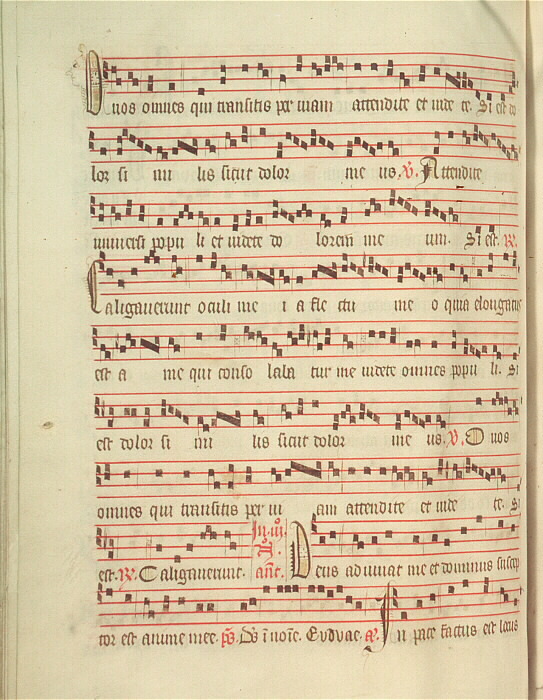 O uos omnes qui transitis per uiam attendite et uide te. Si est do
lor si mi lis sicut dolor me us. V. A ttendite
uniuersi popu li et uidete do lorem me um. Si est. R.
C aligauerunt oculi me i a fle tu me o quia elongatus
est a me qui conso laba tur me uidete omnes popu li. Si
est dolor si mi lis sicut dolor me us. V. O uos
omnes qui transitis per ui am attendite et uide te. Si
est. R. C aligauerunt. ant. D eus adiuuat me et dominus suscep
tor est anime mee. ps. Ds i noie. Evovae. a. I n pace factus est locus